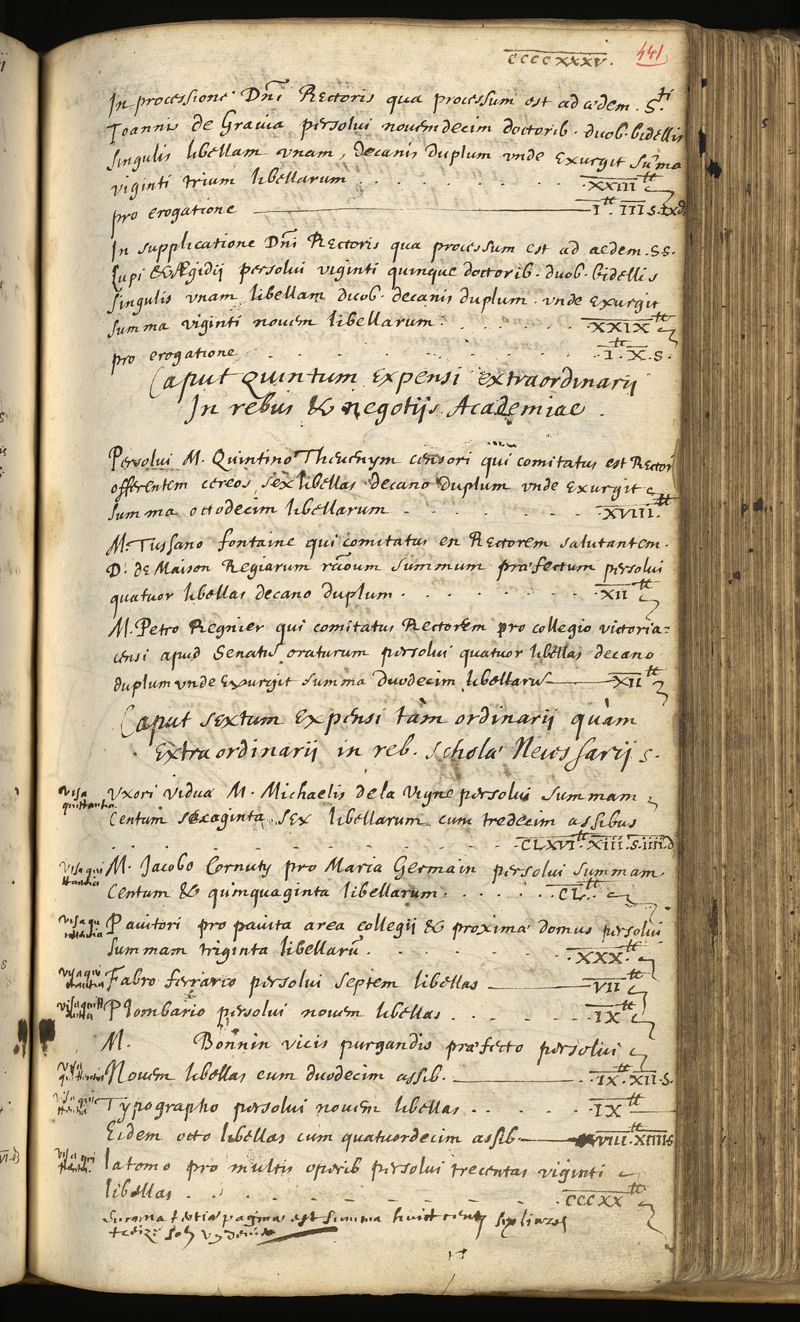 CCCCXXXV. 441
In processione Dni Rectoris qua processum est ad ædem . Sti
Ioannis de Gravia persolui novemdecim doctorib. duob. bidellis
singulis libellam vnam, decanis duplum vnde exurgit suma
viginti trium libellarum . . . . . . . . XXIII tt
pro erogatione — I tt. III s. IX d
In supplicatione Dni Rectoris qua processum est ad aedem . SS.
Lupi & Ægidij persolui viginti quinque doctorib. duob. bidellis
singulis vnam libellam duob. decanis duplum . vnde exurgit
summa viginti novem libellarum . . . . . . XXIX tt
pro erogatione . . . . . . . . . I tt. X. s.
Caput Quintum Expensi extraordinarij
In rebus & negotijs Academiae .
Persolui M. Quintino Theuenym censori qui comitatus est Rector
offerentem cereos sex libellas decano duplum vnde exurgit
summa octodecim libellarum - - - - - - - XVIII. tt
M. Tussano fontaine qui comitatus en Rectorem salutantem .
D. de Maison Regiarum summum præfectum persolui
quatuor libellas decano duplum . . . . . . . XII tt
M. Petro Regnier qui comitatus Rectorem pro collegio victoria=
censi apud Senatu oraturum persolui quatuor libellas decano
duplum vnde exurgit summa duodecim libellaru — XII tt
Caput sextum Expensi tàm ordinarij quàm
Extraordinarij in reb. scholæ Necessarijs.
visa quittantia
Vxori vidua M. Michaelis de la Vigne persolui summam
Centum sexaginta sex libellarum cum tredecim assibus
. . . . . . . . . CLXVI tt. XIII. s. IIII d
visa quittantia
M. Jacobo Cornuty pro Maria Germain persolui summam
Centum & quinquaginta libellarum . . . . . . CL. tt
visa quittantia
Pavitori pro pavita area collegij & proxima domus persolui
summam triginta libellarū . . . . . . . XXX. tt
visa quittantia
Fabro ferrario persolui septem libellas — VII tt
visa quittantia
Plombario persolui novem libellas . . . . . . IX tt
M. Bonnin vicis purgandis præfecto persolui
visa quittantia
Novem libellas cum duodecim assib. — IX. tt XII. s.
visa quittantia
Typographo persolui novem libellas . . . . . IX tt
Eidem octo libellas cum quatuordecim assib — VIII. XIIII s
visa quittantia
latomo pro multis operib persolui trecentas viginti
libellas . . . . . . . . . CCCXX tt
Summa pagina est summa huict cens six livres
treize solz